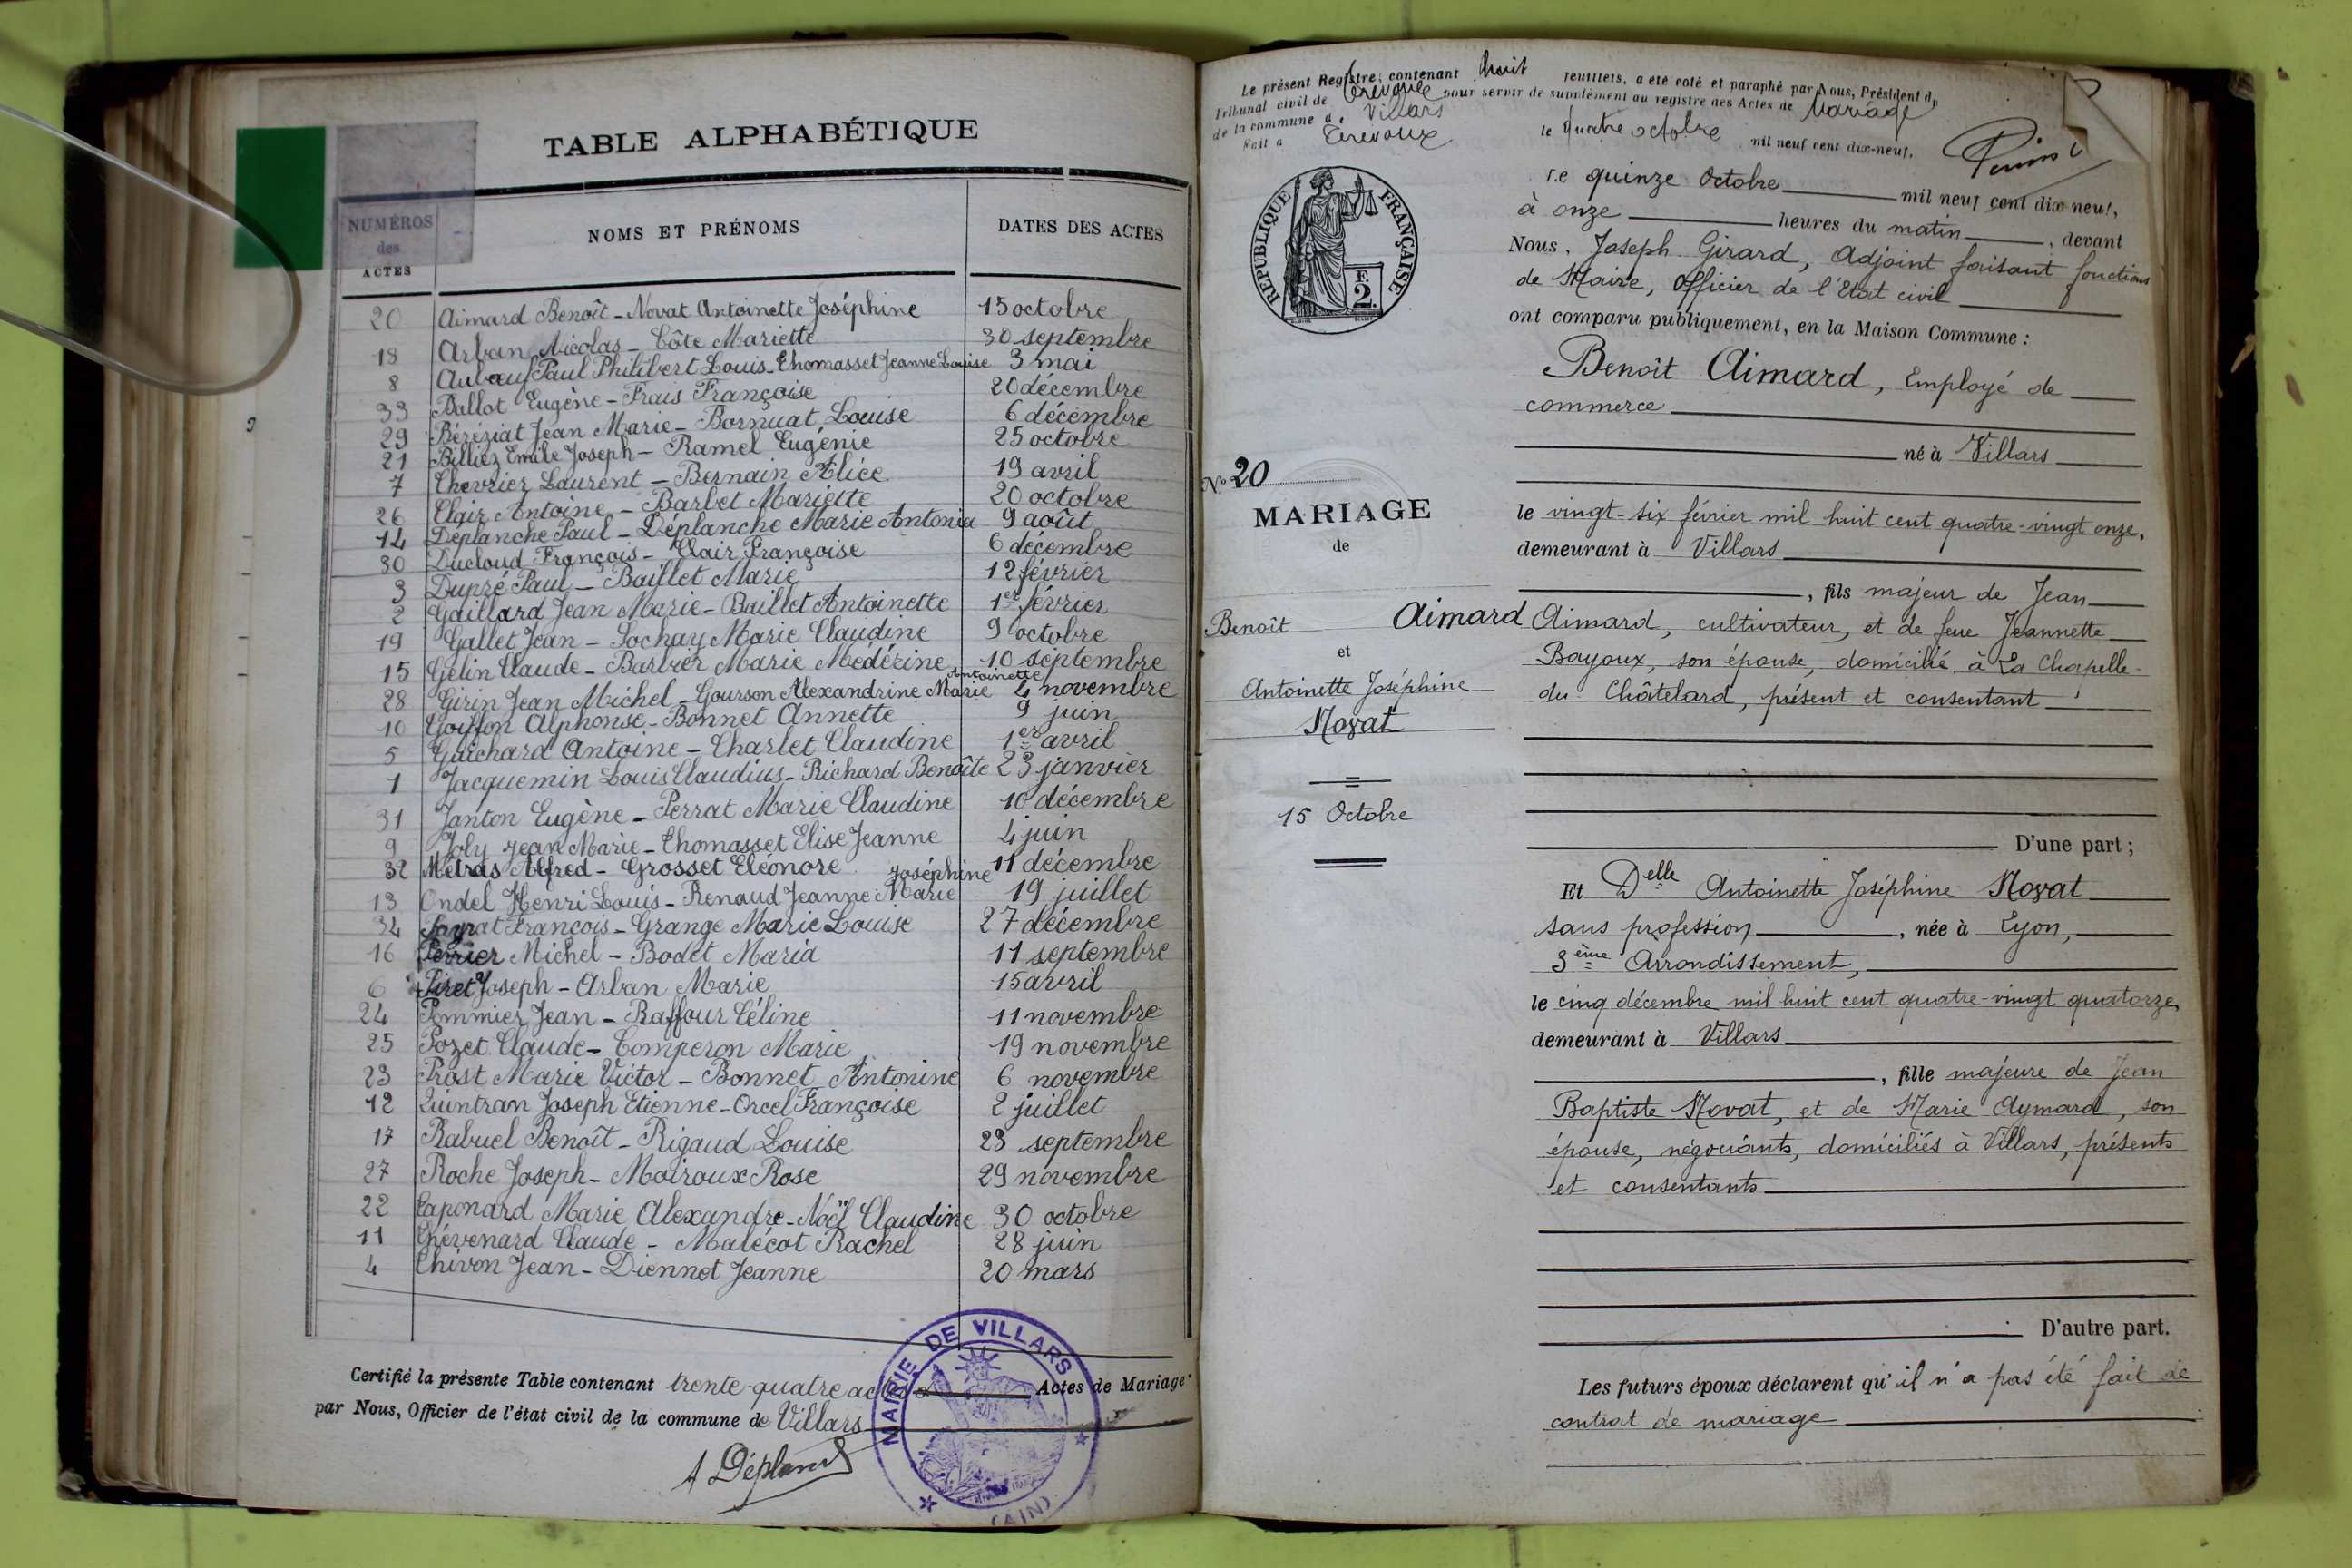 TABLE ALPHABÉTIQUE
NUMÉROS des ACTES
NOMS ET PRÉNOMS
DATES DES ACTES
20 Aimard Benoît - Novat Antoinette Joséphine 15 octobre
18 Arban Nicolas - Côte Mariette 30 septembre
8 Aubœuf Paul Philibert Louis - Thomasset Jeanne Louise 3 mai
33 Ballot Eugène - Frais Françoise 20 décembre
29 Béréziat Jean Marie - Bornuat Louise 6 décembre
21 Billiez Emile Joseph - Ramel Eugénie 25 octobre
7 Chevrier Laurent - Bernain Alice 19 avril
26 Clair Antoine - Barbet Mariette 20 octobre
14 Déplanche Paul - Déplanche Marie Antonia 9 août
30 Ducloud François - Clair Françoise 6 décembre
3 Dupré Paul - Baillet Marie 12 février
2 Gaillard Jean Marie - Baillet Antoinette 1er février
19 Gallet Jean - Sochay Marie Claudine 9 octobre
15 Gelin Claude - Barbier Marie Medérine 10 septembre
28 Girin Jean Michel - Gourson Alexandrine Marie Antoinette 4 novembre
10 Goiffon Alphonse - Bonnet Annette 9 juin
5 Guichard Antoine - Charlet Claudine 1er avril
1 Jacquemin Louis Claudius - Richard Benoîte 23 janvier
31 Janton Eugène - Perrat Marie Claudine 10 décembre
9 Joly Jean Marie - Thomasset Elise Jeanne 4 juin
32 Métras Alfred - Grosset Eléonore 11 décembre
13 Ondel Henri Louis - Renaud Jeanne Marie Joséphine 19 juillet
34 Payrat François - Grange Marie Louise 27 décembre
16 Perrier Michel - Bodet Maria 11 septembre
6 Piret Joseph - Arban Marie 15 avril
24 Pommier Jean - Raffour Céline 11 novembre
25 Pozet Claude - Comperon Marie 19 novembre
23 Prost Marie Victor - Bonnet Antonine 6 novembre
12 Quintran Joseph Etienne - Orcel Françoise 2 juillet
17 Rabuel Benoît - Rigaud Louise 23 septembre
27 Roche Joseph - Moiroux Rose 29 novembre
22 Taponard Marie Alexandre - Noël Claudine 30 octobre
11 Thévenard Claude - Malécot Rachel 28 juin
4 Thivon Jean - Diennet Jeanne 20 mars
Certifié la présente Table contenant trente-quatre actes Actes de Mariage
par Nous, Officier de l'état civil de la commune de Villars
A Déplanch
MAIRIE DE VILLARS
(AIN)
Le présent Registre, contenant huit feuillets, a été coté et paraphé par Nous, Président du
Tribunal civil de Trévoux pour servir de supplément au registre des Actes de Mariage
de la commune de Villars
Fait à Trévoux le quatre octobre mil neuf cent dix-neuf.
RÉPUBLIQUE FRANÇAISE
F. 2.
Le quinze Octobre mil neuf cent dix neuf,
à onze heures du matin, devant
Nous, Joseph Girard, Adjoint faisant fonctions
de Maire, Officier de l'Etat civil
ont comparu publiquement, en la Maison Commune :
Benoît Aimard, Employé de
commerce
né à Villars
le vingt-six février mil huit cent quatre-vingt onze,
demeurant à Villars
, fils majeur de Jean
Aimard, cultivateur, et de feue Jeannette
Bayoux, son épouse, domicilié à La Chapelle-
du Châtelard, présent et consentant
D'une part ;
Et Delle Antoinette Joséphine Novat
sans profession, née à Lyon,
3ème Arrondissement,
le cinq décembre mil huit cent quatre-vingt quatorze,
demeurant à Villars
, fille majeure de Jean
Baptiste Novat, et de Marie Aymard, son
épouse, négociants, domiciliés à Villars, présents
et consentants
D'autre part.
Les futurs époux déclarent qu'il n'a pas été fait de
contrat de mariage
No 20
MARIAGE
de
Benoît Aimard
et
Antoinette Joséphine
Novat
15 Octobre